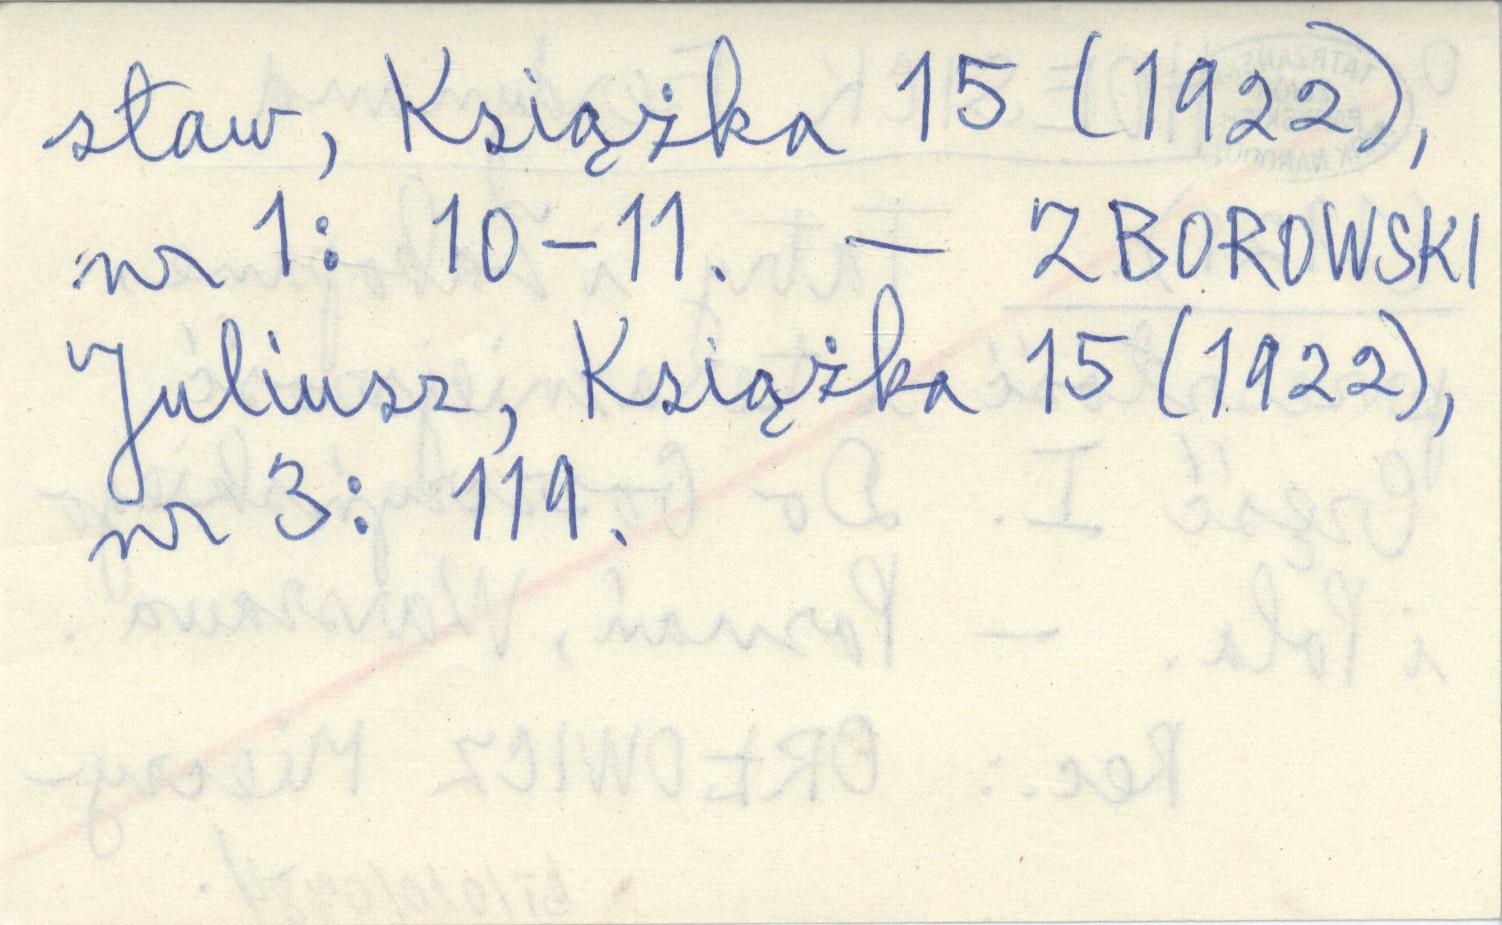 sław, Książka 15 (1922),
nr 1: 10-11. — ZBOROWSKI
Juliusz, Książka 15 (1922),
nr 3: 119.